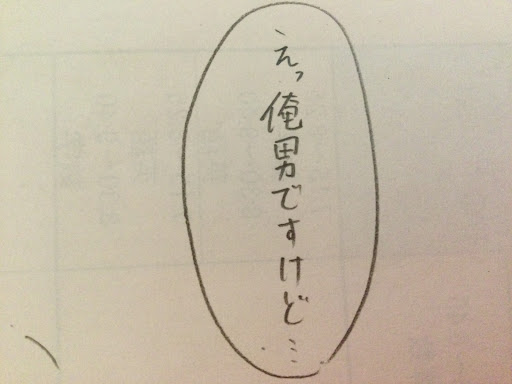 えっ俺男ですけど…